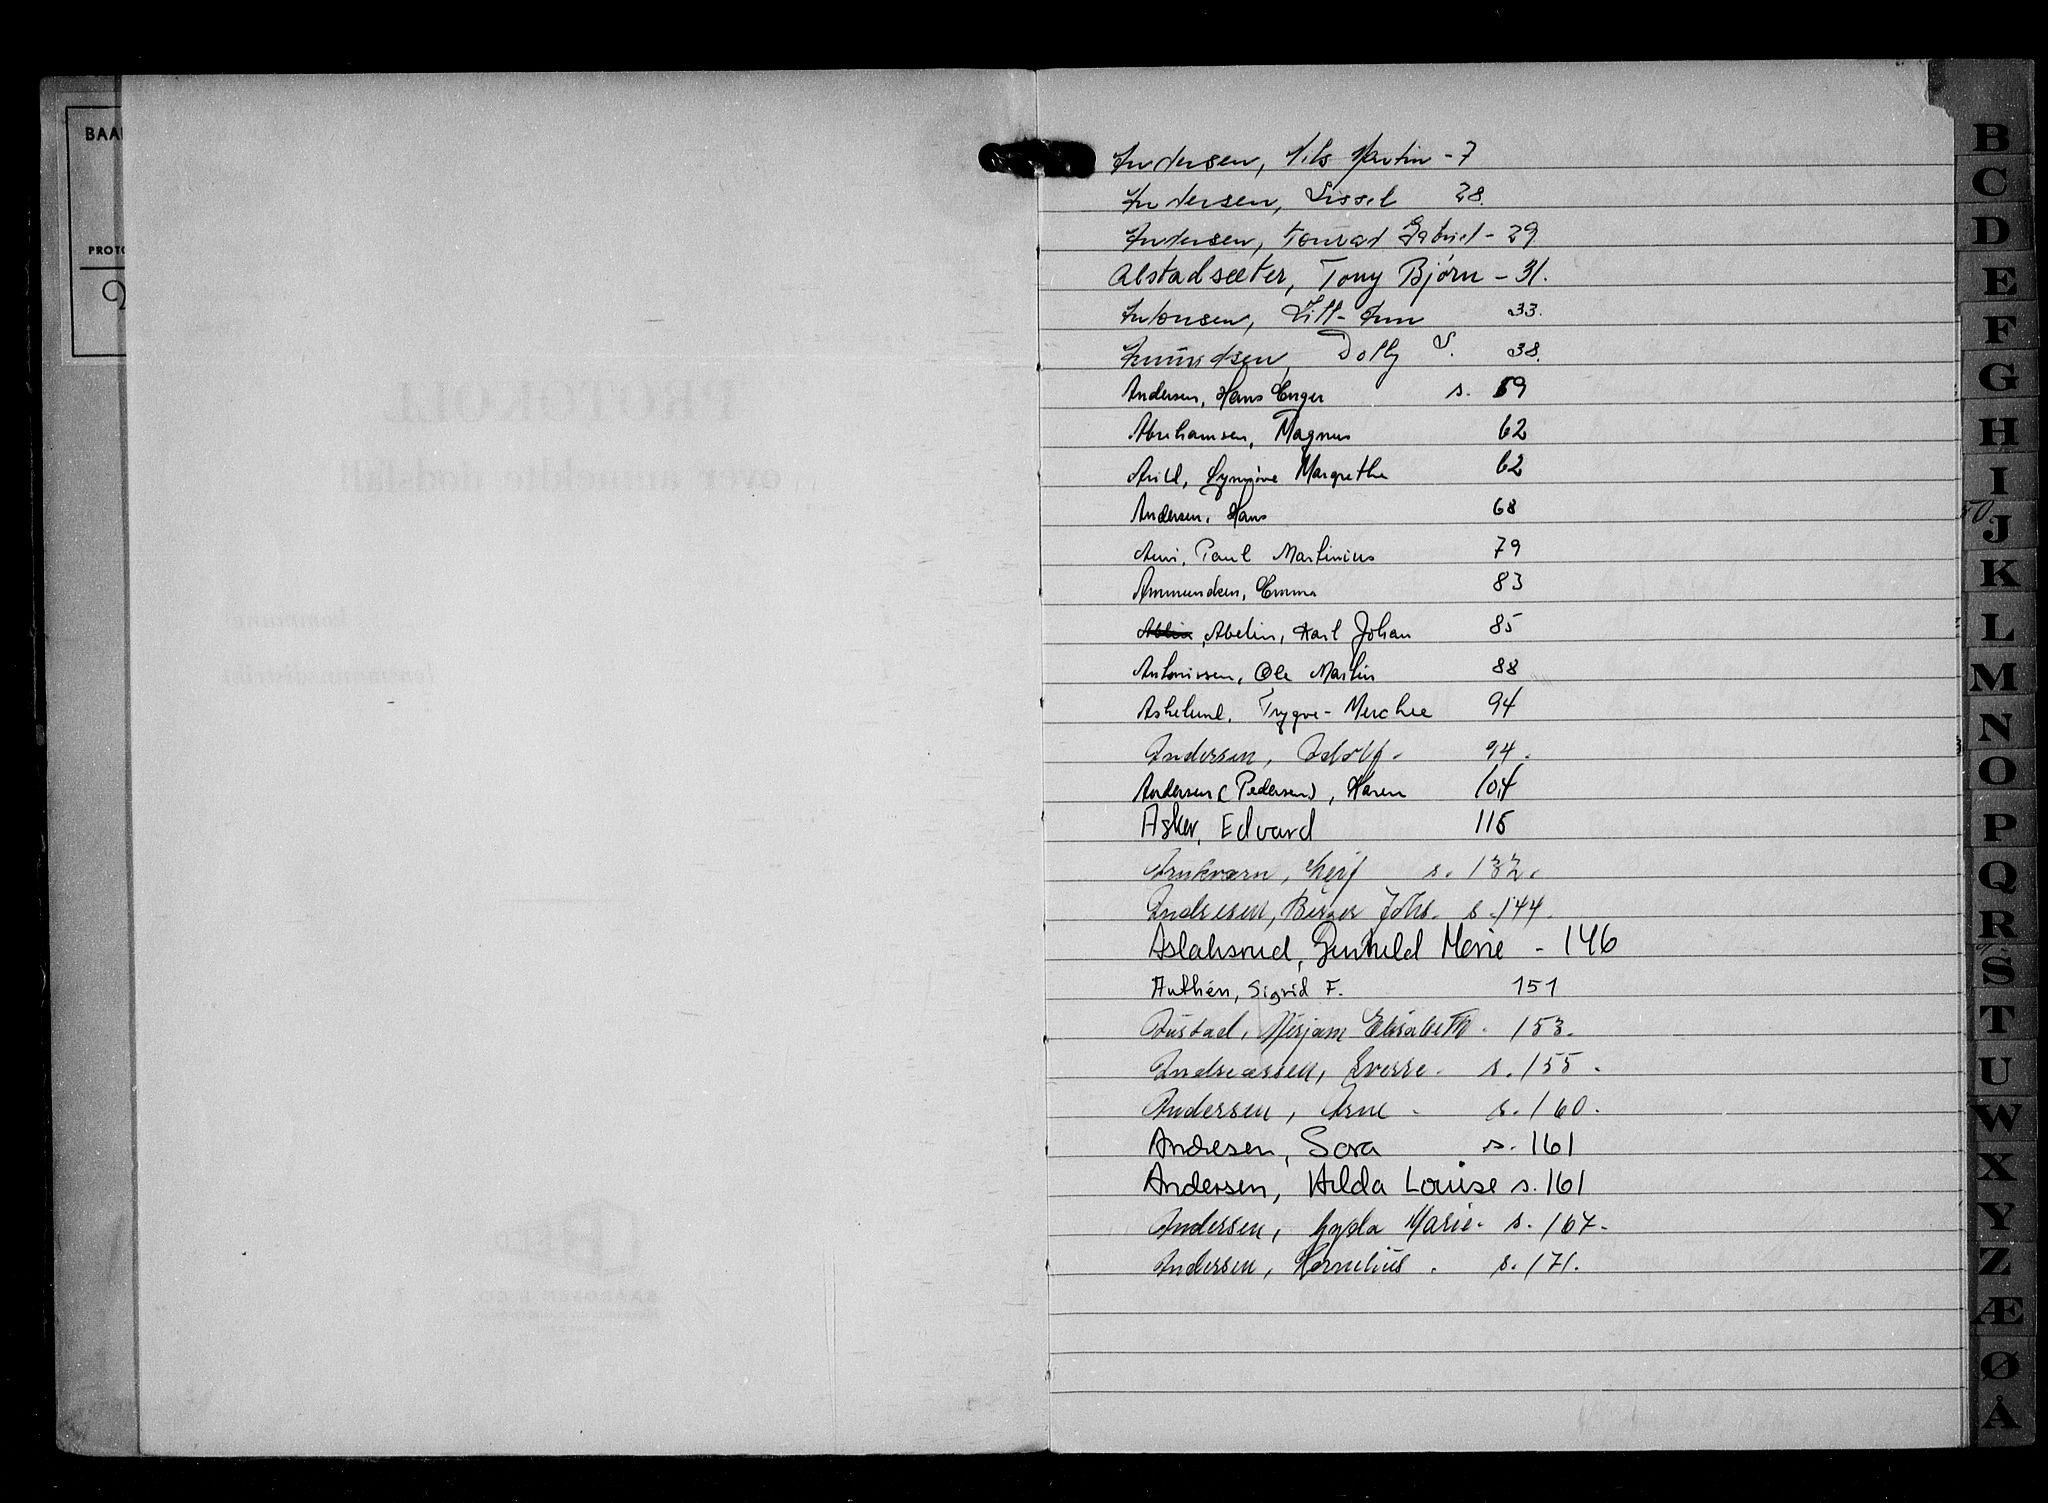 BAA
PROTO
Andersen, Nils Martin - 7
Andersen, Sissel 28.
Andersen, Konrad Gabriel - 29
Alstadsæter, Tony Bjørn - 31.
Antonsen, Lill-Ann 33.
Amundsen, Dolly S. 38.
Andersen, Hans Enger s. 59
Abrahamsen, Magnus 62
Synnøve Margrethe 62
Andersen, Hans 68
Paul Martinius 79
Ammundsen, Emma 83
Abelin, Karl Johan 85
Antonissen, Ole Martin 88
Askelund, Trygve- 94
Andersen, Adolf. 94.
Andersen (Pedersen), Karen 104
Asker, Edvard 115
Arnkværn, Leif s. 132.
Andresen, Birger Johs. s. 144.
Aslaksrud, Gunhild Marie - 146
Authén, Sigrid F. 151
Austad, Mirjam Elisabeth. 153.
Andreassen, Sverre. s. 155.
Andersen, Arne. s. 160.
Andresen, Sara s. 161
Andersen, Hilda Louise s. 161
Andersen, Gyda Marie. s. 167.
Andersen, Kornelius. s. 171.
B
C
D
E
F
G
H
I
J
K
L
M
N
O
P
Q
R
S
T
U
W
X
Y
Z
Æ
Ø
Å